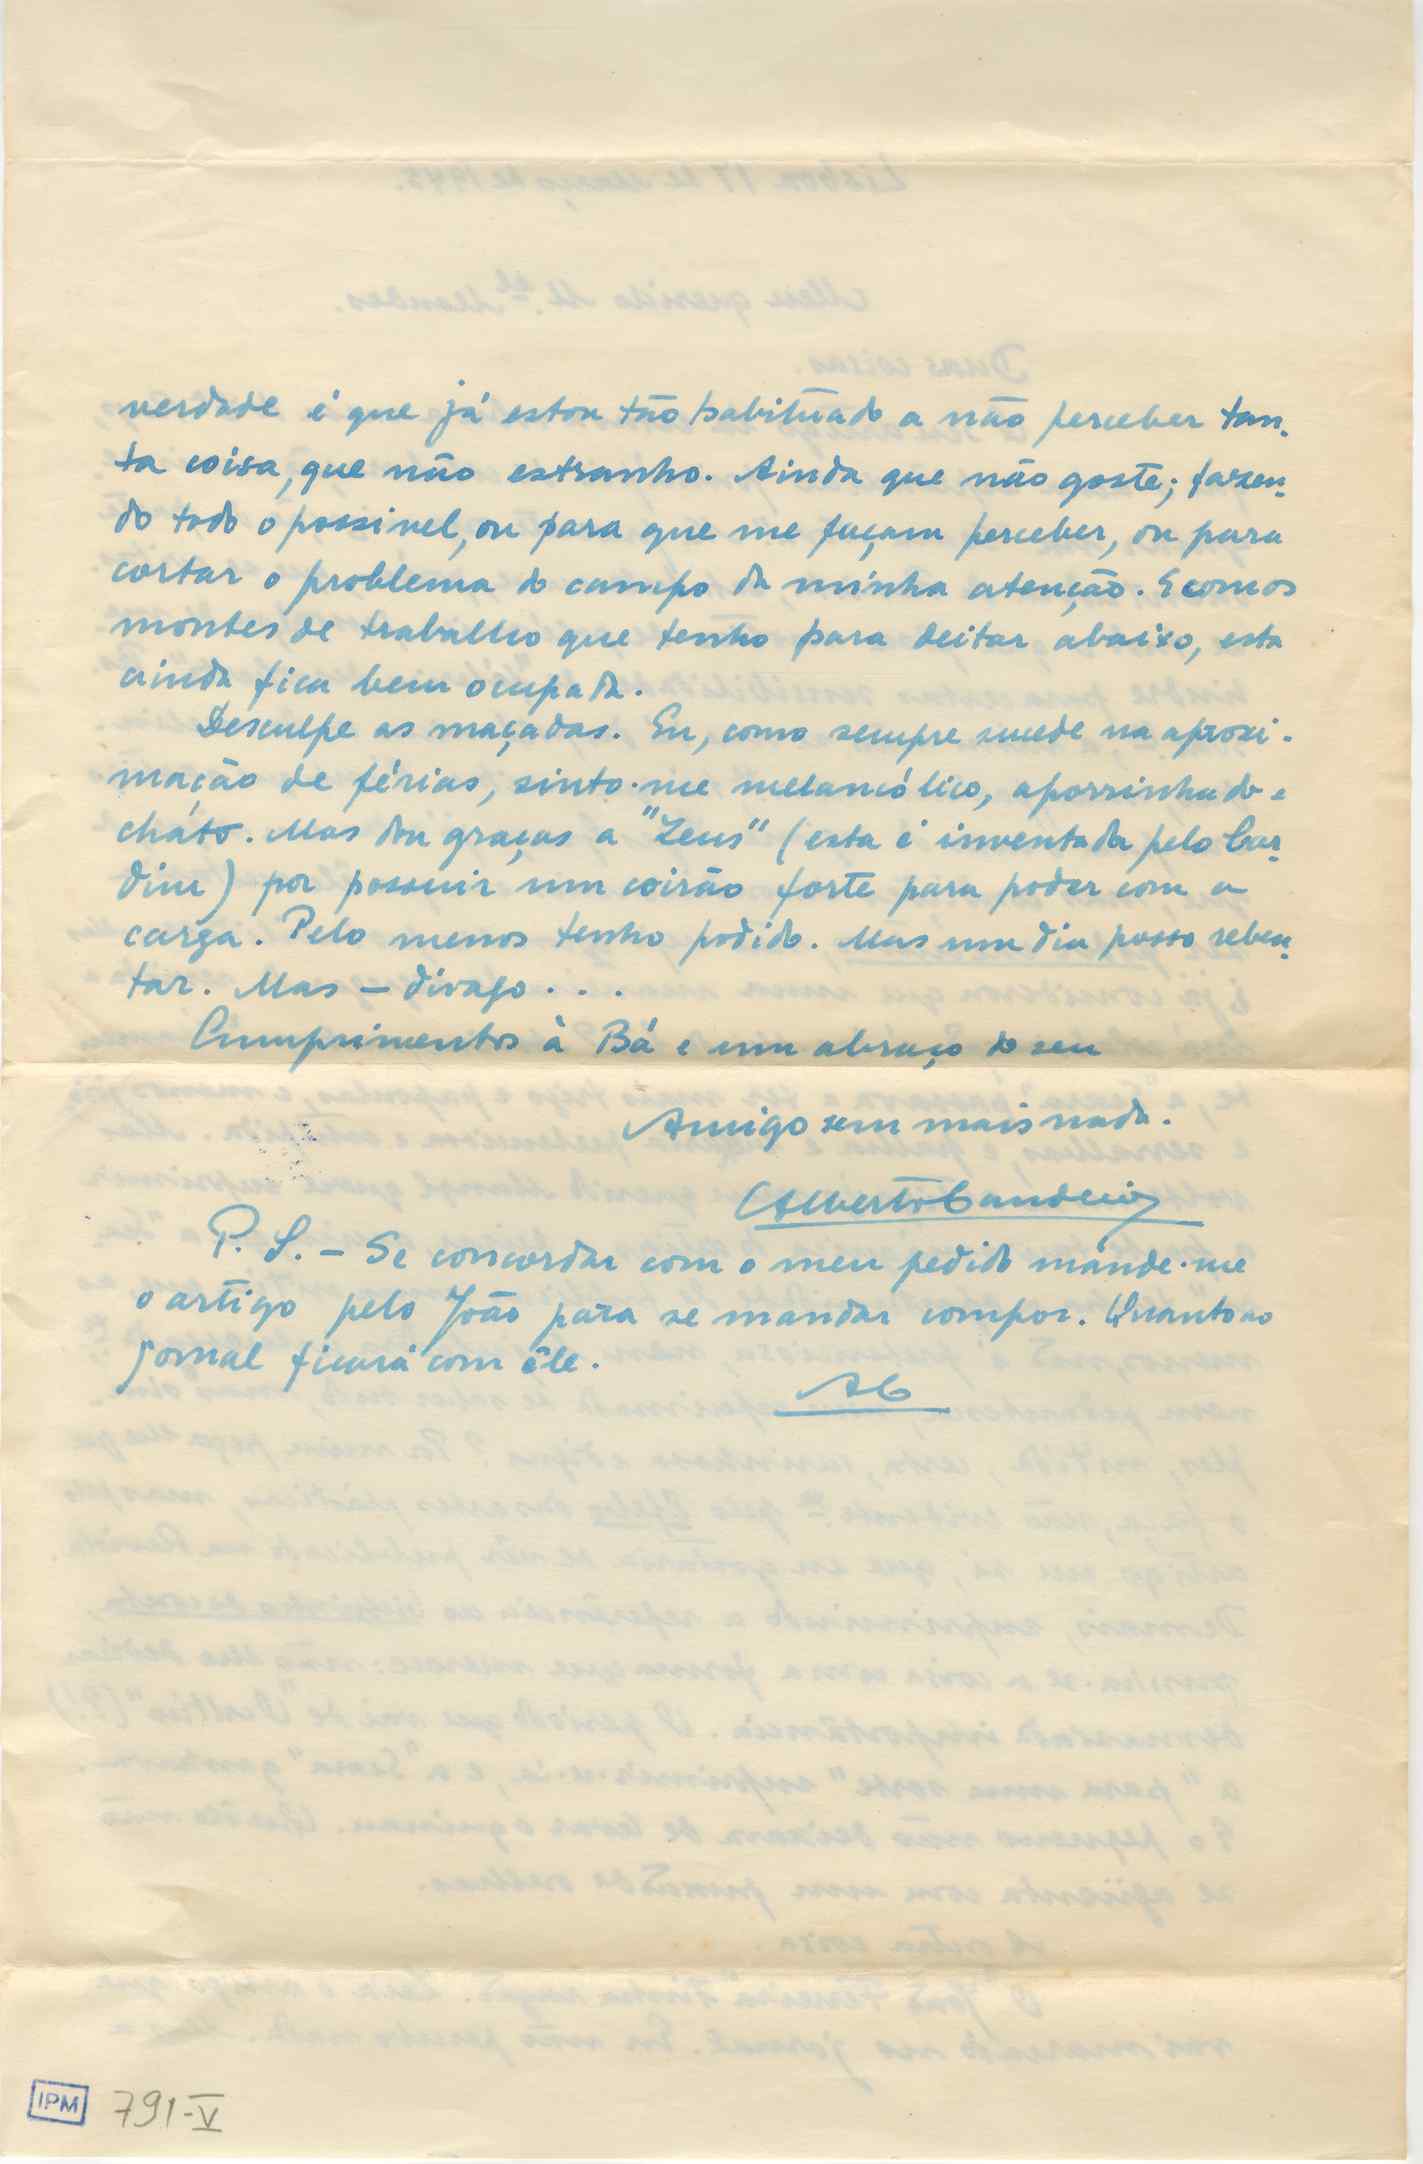 verdade é que já estou tão habituado a não perceber tan-
ta coisa, que não estranho. Ainda que não goste; fazen-
do todo o possivel, ou para que me façam perceber, ou para
cortar o problema do campo da minha atenção. E como os
montes de trabalho que tenho para deitar abaixo, esta
ainda fica bem ocupada.
Desculpe as maçadas. Eu, como sempre sucede na aproxi-
mação de férias, sinto-me melancólico, aporrinhado e
cháto. Mas dou graças a "Zeus" (esta é inventada pelo Car-
dim) por possuir um coirão forte para poder com a
carga. Pelo menos tenho podido. Mas um dia posso reben-
tar. Mas — divago . . .
Cumprimentos à Bá e um abraço do seu
Amigo sem mais nada.
Alberto Candeias
P. S. — Se concordar com o meu pedido mande-me
o artigo pelo João para se mandar compor. Quanto ao
jornal ficará com êle.
AC
IPM 791-V